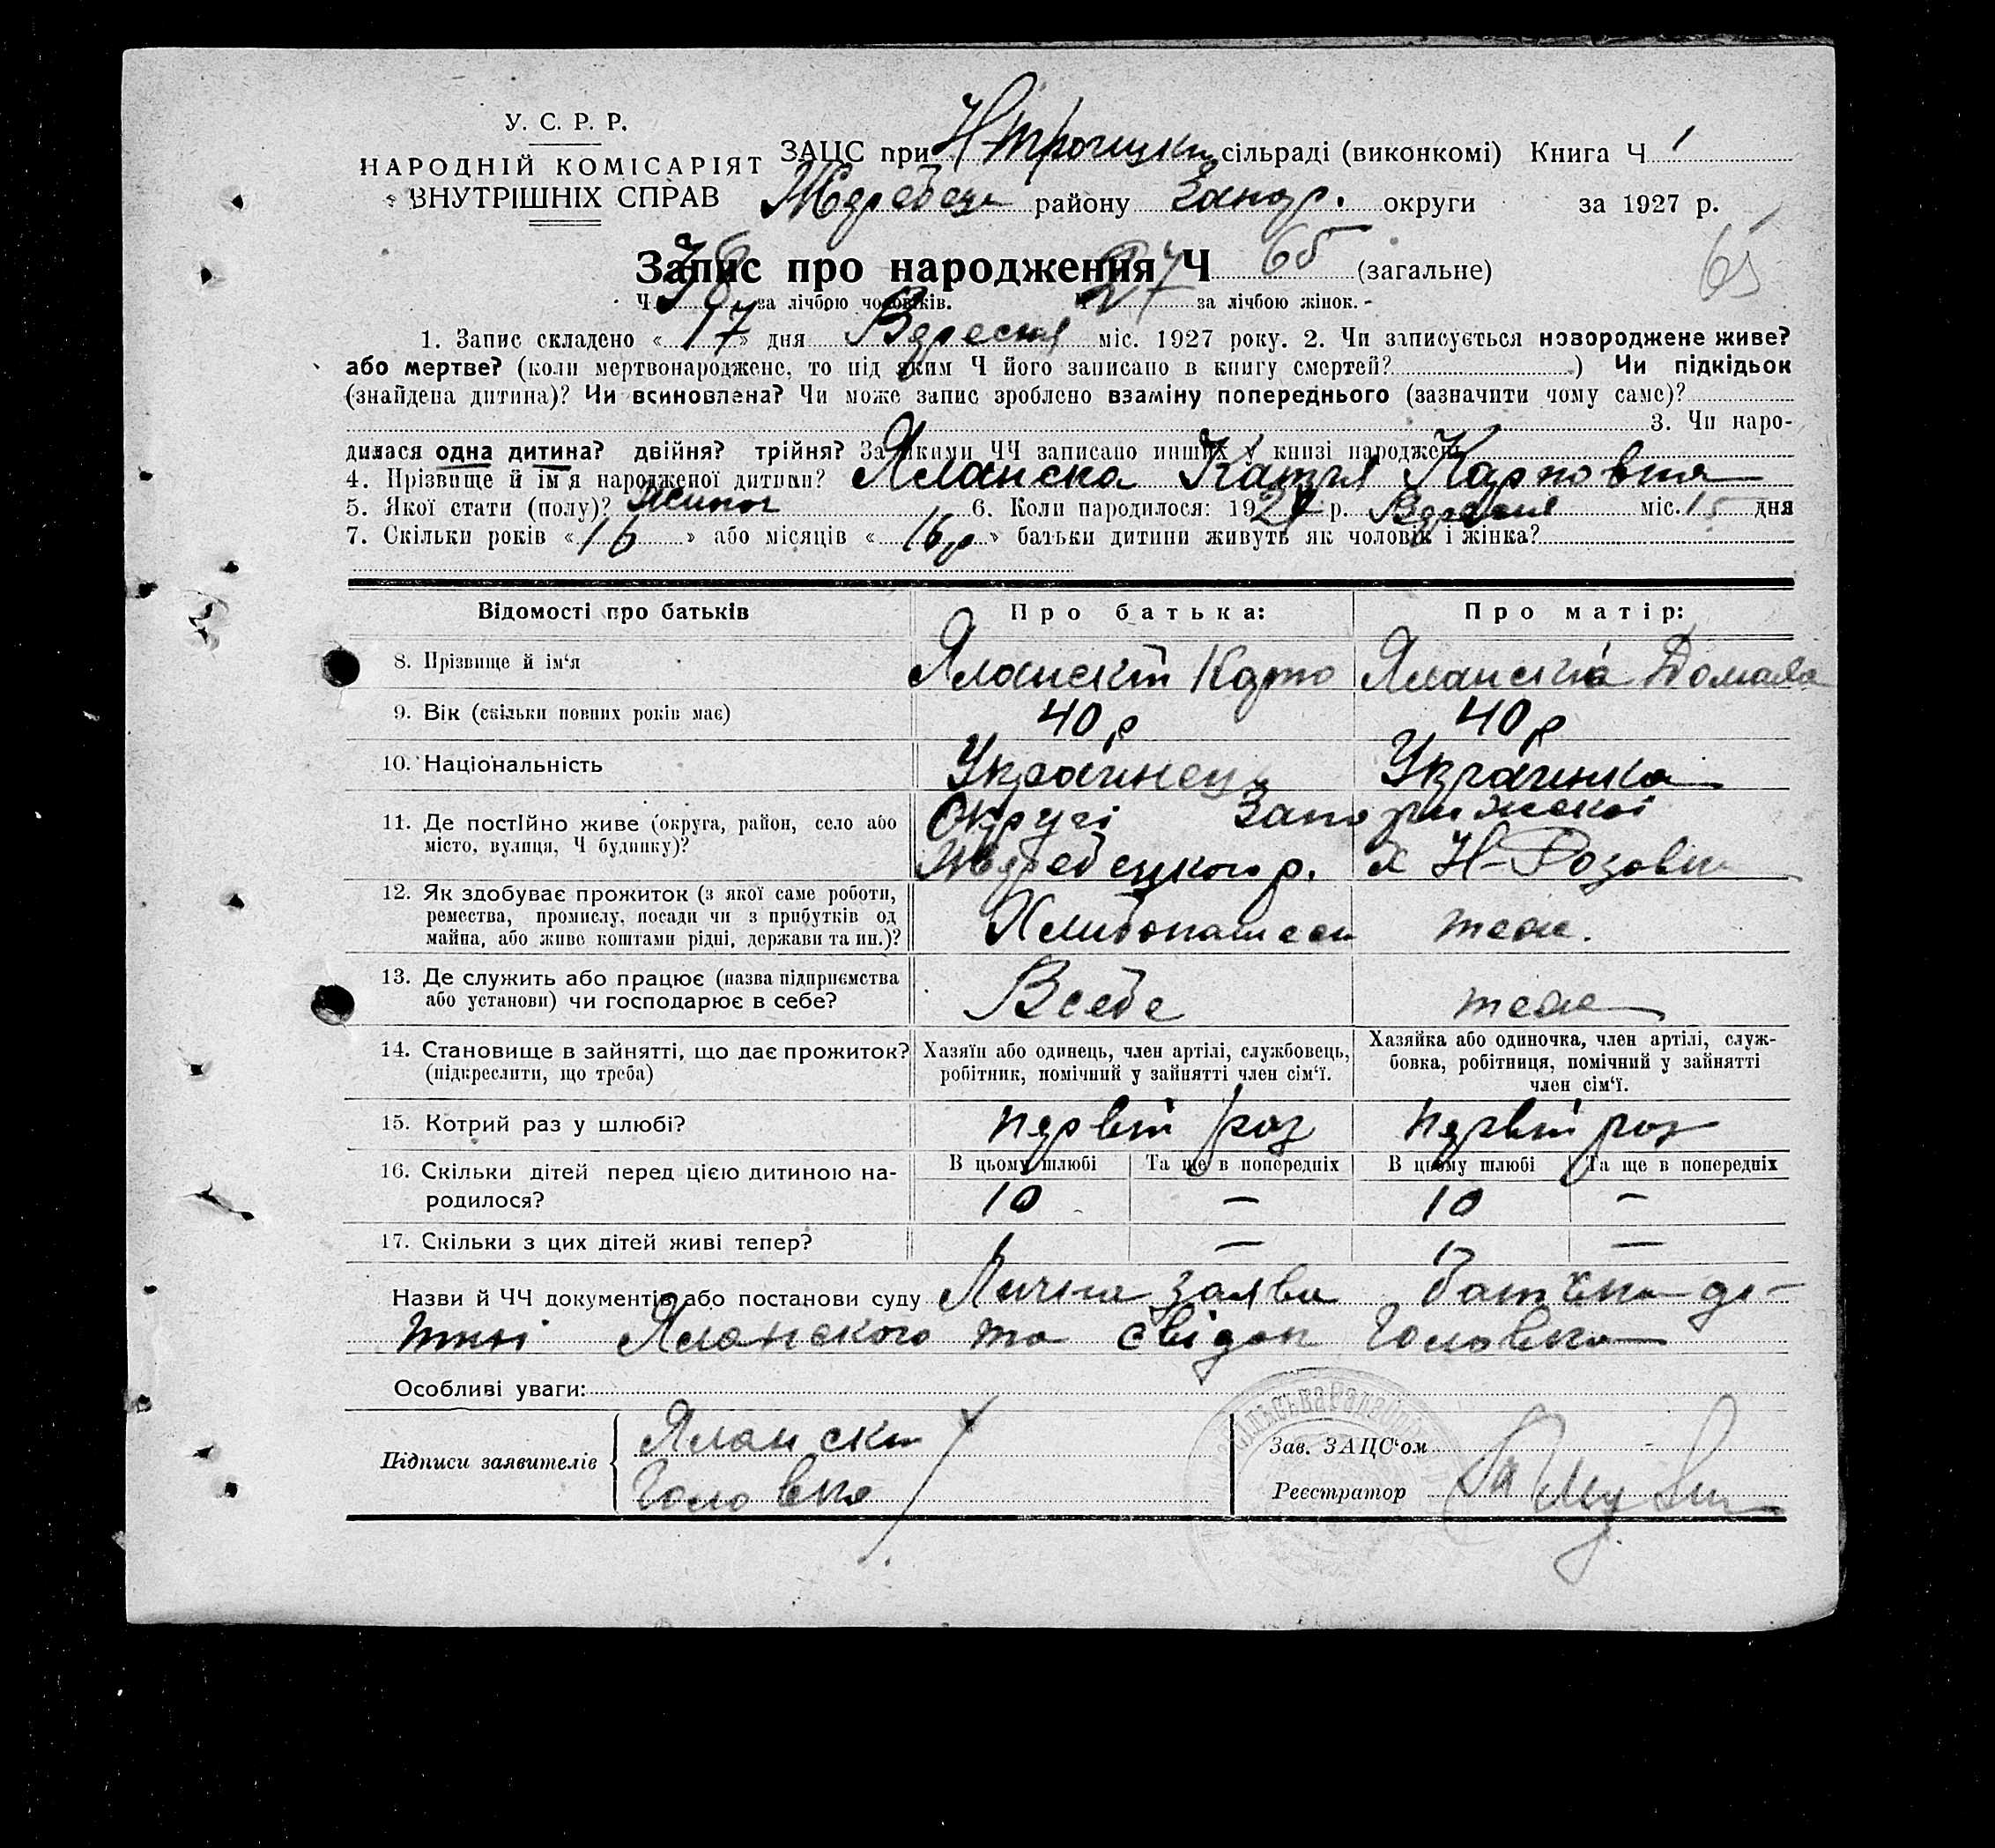 У. С. Р. Р.
НАРОДНІЙ КОМІСАРІЯТ
ВНУТРІШНІХ СПРАВ
ЗАЦС при Н-Троицкій сільраді (виконкомі) Книга Ч 1
Жеребец району Запор. округи за 1927 р.
Запис про народження Ч 65 (загальне) 65
Ч 38 за лічбою чоловіків. Ч 27 за лічбою жінок.
1. Запис складено « 17 » дня Вересня міс. 1927 року. 2. Чи записується новороджене живе?
або мертве? (коли мертвонароджене, то під яким Ч його записано в книгу смертей? ) Чи підкідьок
(знайдена дитина)? Чи всиновлена? Чи може запис зроблено взаміну попереднього (зазначити чому саме)?
3. Чи наро-
дилася одна дитина? двійня? трійня? За якими ЧЧ записано инших у книзі народжень
4. Прізвище й ім'я народженої дитини? Яланска Катря Карповна
5. Якої стати (полу)? Жиноч 6. Коли народилося: 1927 р. Вересня міс. 15 дня
7. Скільки років « 16 » або місяців « 16 р » батьки дитини живуть як чоловік і жінка?
Відомості про батьків Про батька: Про матір:
8. Прізвище й ім'я Яланскій Карпо Яланська Домаха
9. Вік (скільки повних років має) 40 р 40 р
10. Національність Украинець Украинка
11. Де постійно живе (округа, район, село або Округі Запорижскої
місто, вулиця, Ч будинку)? Жеребецкого р. х Н-Розовки
12. Як здобуває прожиток (з якої саме роботи,
ремества, промислу, посади чи з прибутків од Хлибопашеси теже.
майна, або живе коштами рідні, держави та ин.)?
13. Де служить або працює (назва підприємства
або установи) чи господарює в себе? Всебе теже
14. Становище в зайнятті, що дає прожиток? Хазяїн або одинець, член артілі, службовець, Хазяйка або одиночка, член артілі, служ-
(підкреслити, що треба) робітник, помічний у зайнятті член сім'ї. бовка, робітниця, помічний у зайнятті
член сім'ї.
15. Котрий раз у шлюбі? первій раз первій раз
16. Скільки дітей перед цією дитиною на- В цьому шлюбі Та ще в попередніх В цьому шлюбі Та ще в попередніх
родилося? 10 — 10 —
17. Скільки з цих дітей живі тепер? — —
Назви й ЧЧ документів або постанови суду Лична заява батька ді-
тині Яланского та свідок Головко
Особливі уваги:
Підписи заявителів Яланский
Головко
Зав. ЗАЦС'ом
Реєстратор